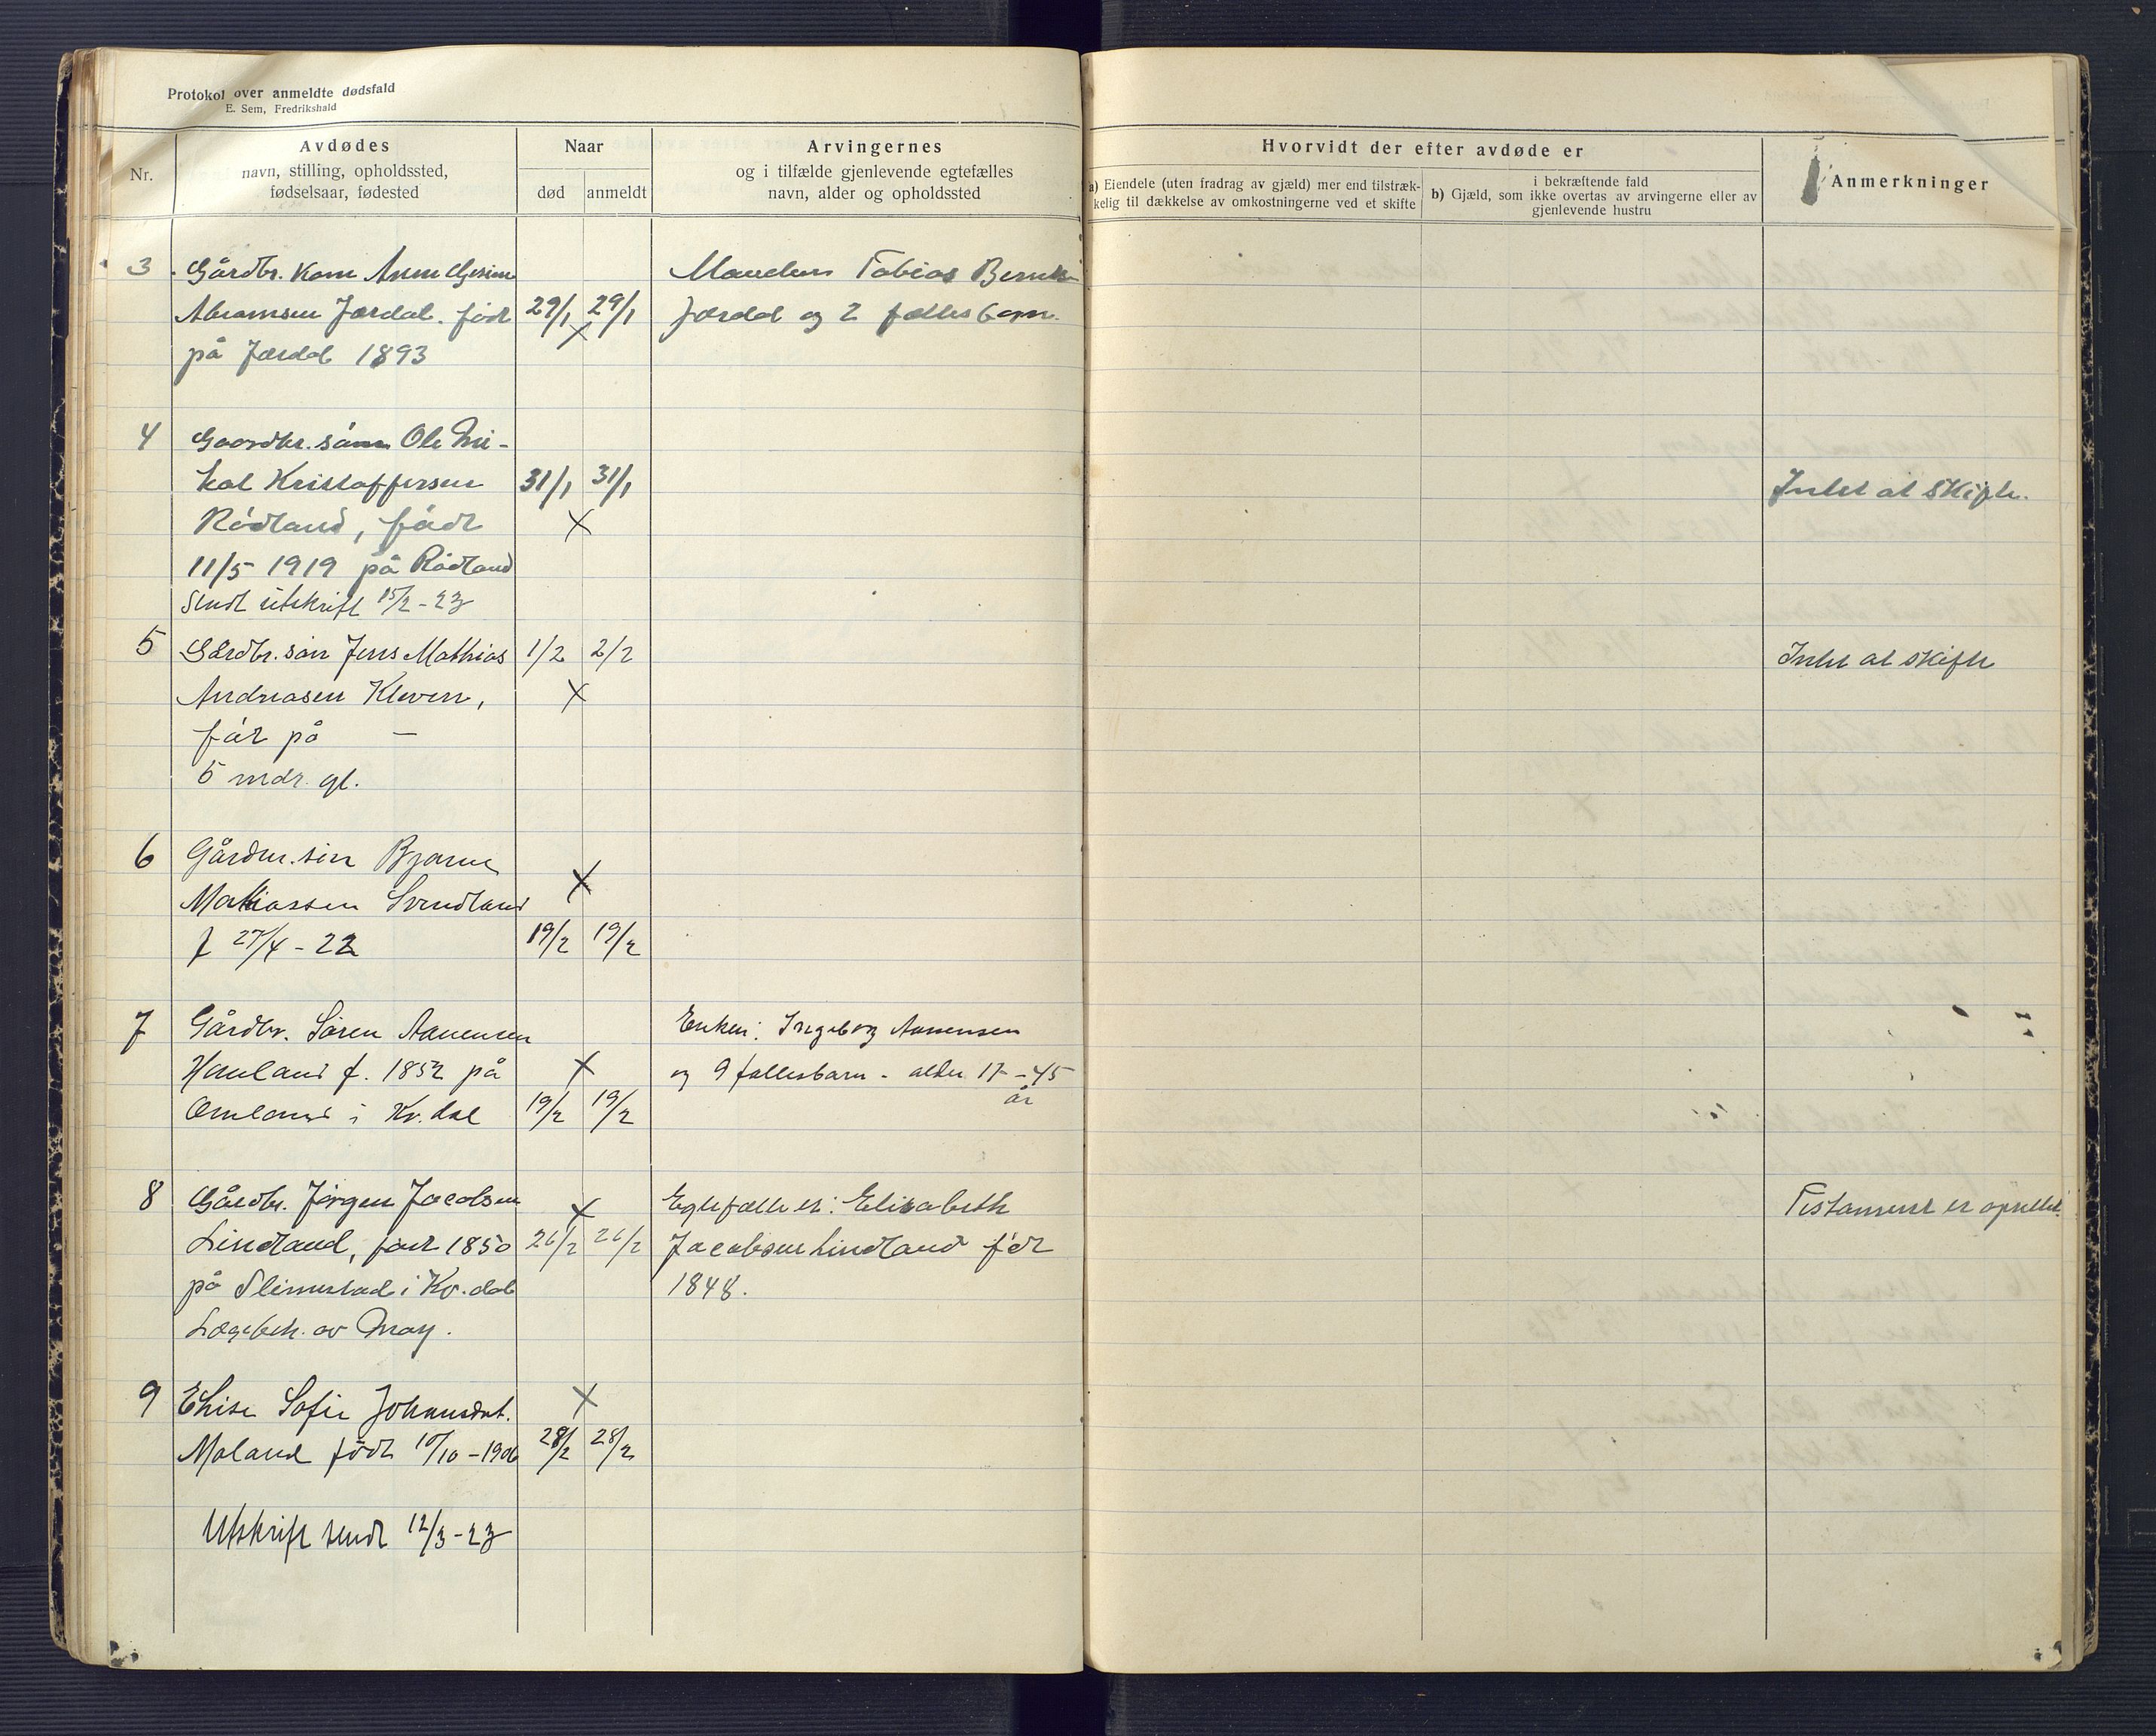 Protokol over anmeldte dødsfald
E. Sem, Fredrikshald
Nr.
Avdødes
navn, stilling, opholdssted,
fødselsaar, fødested
Naar
død
anmeldt
Arvingernes
og i tilfælde gjenlevende egtefælles
navn, alder og opholdssted
Hvorvidt der efter avdøde er
a) Eiendele (uten fradrag av gjæld) mer end tilstræk-
kelig til dækkelse av omkostningerne ved et skifte
i bekræftende fald
b) Gjæld, som ikke overtas av arvingerne eller av
gjenlevende hustru
Anmerkninger
3 Gårdbr. Kone Anne
Abramsen Jærdal. født 29/1 29/1
på Jærdal 1893 X
Manden Tobias
Jærdal og 2 fælles barn.
4 Gaardbr. sønn Ole Mi-
kal Kristoffersen 31/1 31/1
Rødland, født X
11/5 1919 på Rødland
Sendt utskrift 15/2-23
Intet at skifte.
5 Gårdbr. søn Jens Mathias 1/2 2/2
Andreasen Kleven, X
født på —
5 mdr. gl.
Intet at skifte
6 Gårdbr. søn Bjarne
Mathiassen Svindland X
f 27/4 - 22 19/2 19/2
7 Gårdbr. Søren Aanensen
Hamland f. 1852 på X
Omland i Kv.dal 19/2 19/2
Enken: Ingeborg Aanensen
og 9 fællesbarn - alder 17 - 45
år
8 Gårdbr. Jørgen Jacobsen X
Lindland, født 1850 26/2 26/2
på Slimestad i Kv.dal
Lægebeh. av May.
Egtefælle er: Elisabeth
Jacobsen Lindland født
1848.
Testament er oprettet.
9 Elise Sofie Johansdat. X
Moland født 10/10 - 1906 28/2 28/2
Utskrift sendt 12/3-23